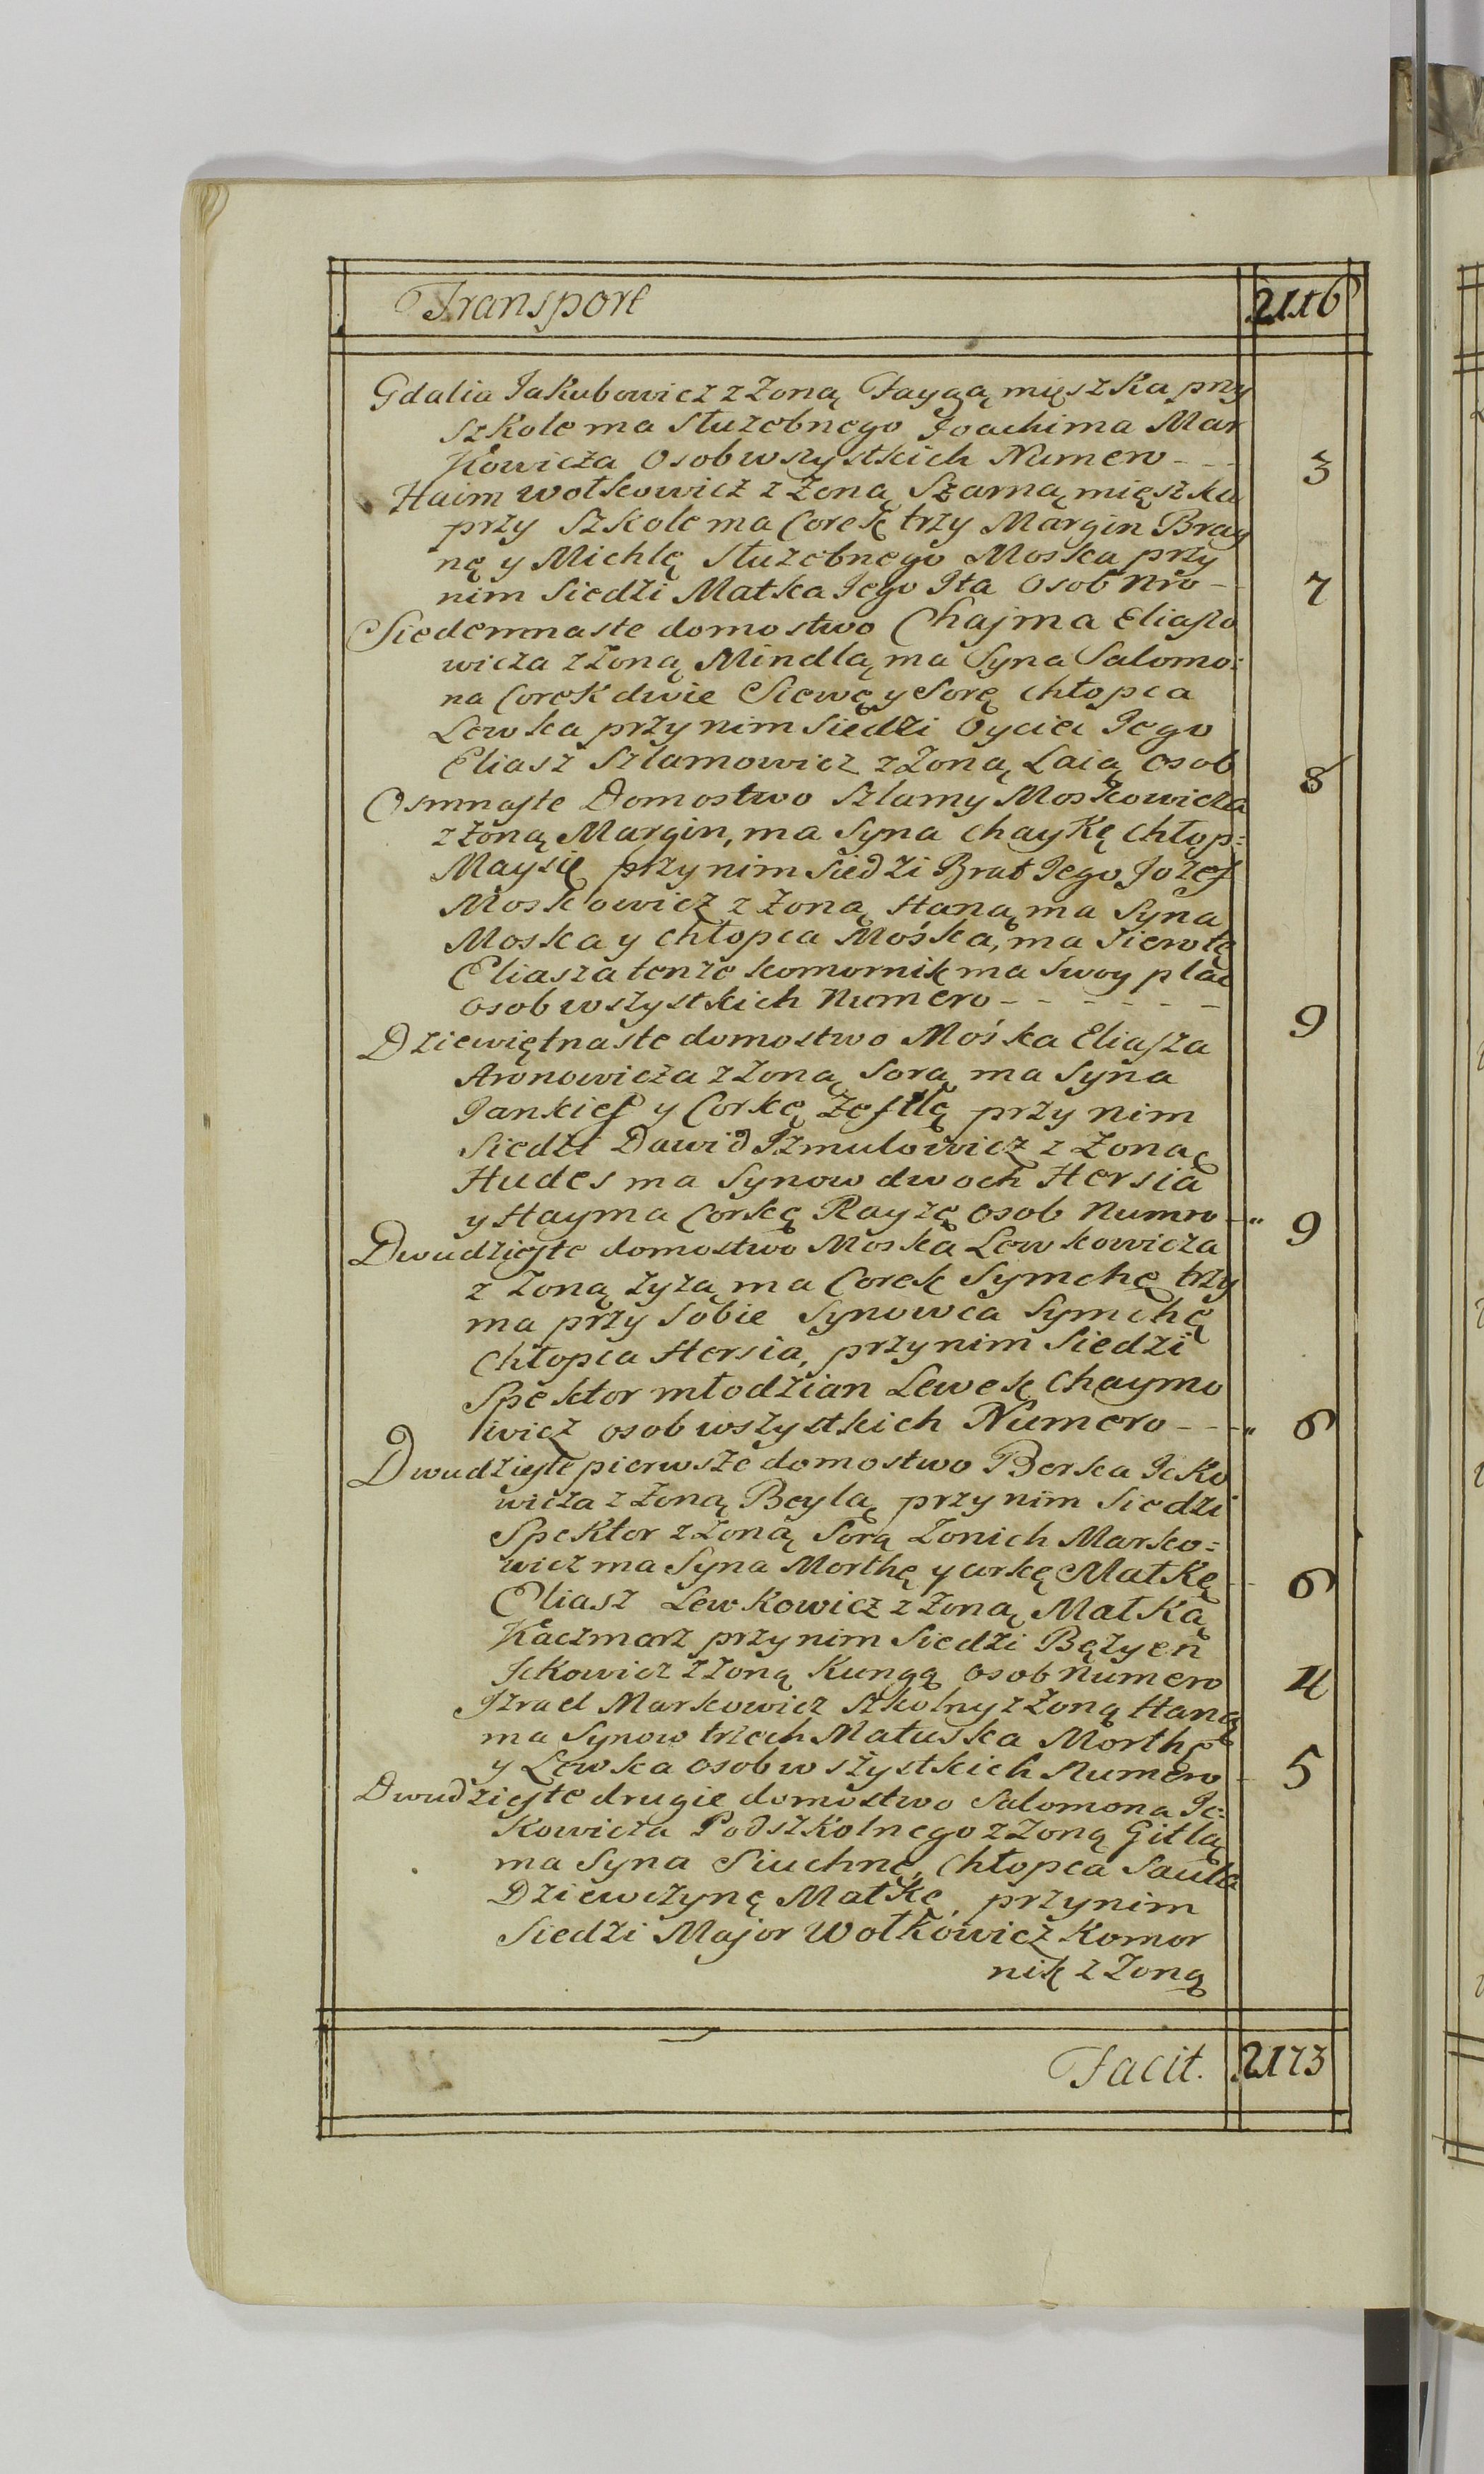 Transport 2116
Gdalia Jakubowicz z Zoną Faygą mięszka przy
szkole ma Służebnego Joachima Mar
kowicza Osob wszystkich Numero - - - 3
Haim Wolkowicz z Zoną Szarną mięszka
przy Szkole ma Corek trzy Margin Bray
nę y Michlę Służebnego Moska przy
nim Siedzi Matka Jego Ita Osob Nro - 7
Siedemnaste domostwo Chajma Eliaszo
wicza z Zoną Mindlą ma Syna Salomo:
na Corek dwie Siewę y Sorę chłopca
Lewka przy nim Siedzi Oyciec Jego
Eliasz Szlamowicz z Zoną Laią osob 8
Osmnaste Domostwo Szlamy Moskowicza
z Zoną Margin, ma Syna Chaykę Chłop=
Maysię przy nim Siedzi Brat Jego Jozef
Moskowicz z Zoną Haną ma Syna
Moska y chłopca Mośka, ma Sierotę
Eliasza tenże komornik ma Swoy plac
osob wszystkich Numero - - - - - - 9
Dziewiętnaste domostwo Mośka Eliasza
Aronowicza z Zoną Sorą ma Syna
Jankief y Corkę Zestlę przy nim
Siedzi Dawid Izmulowicz z Zoną
Hudes ma Synow dwoch Hersia
y Hayma Corkę Rayzę osob Numro - " 9
Dwudzieste domostwo Moska Lewkowicza
z Zoną Zyzą ma Corek Symchę trzy
ma przy Sobie Synowca Symchę
Chłopca Hersia, przy nim Siedzi
Spektor młodzian Lewek Chaymo
wicz osob wszystkich Numero - - - " 6
Dwudzieste pierwsze domostwo Berka Icko
wicza z Zoną Beylą przy nim Siedzi
Spektor z Zoną Sorą Zonich Marko=
wicz ma Syna Morthę y corkę Matkę - - 6
Eliasz Lewkowicz z Zoną Matką
Kaczmarz przy nim Siedzi Bężyen
Ickowicz z Zoną Kungą osob Numero 4
Izrael Markowicz szkolny z Zoną Haną
ma Synow trzech Matuska Morthę
y Lewka osob wszystkich Numero - 5
Dwudzieste drugie domostwo Salomona Ic=
kowicza Podszkolnego z Zoną Gitlą
ma Syna Siuchnę, Chłopca Saula
Dziewczynę Matkę przy nim
Siedzi Major Wolkowicz Komor
nik z Zoną
Facit. 2173